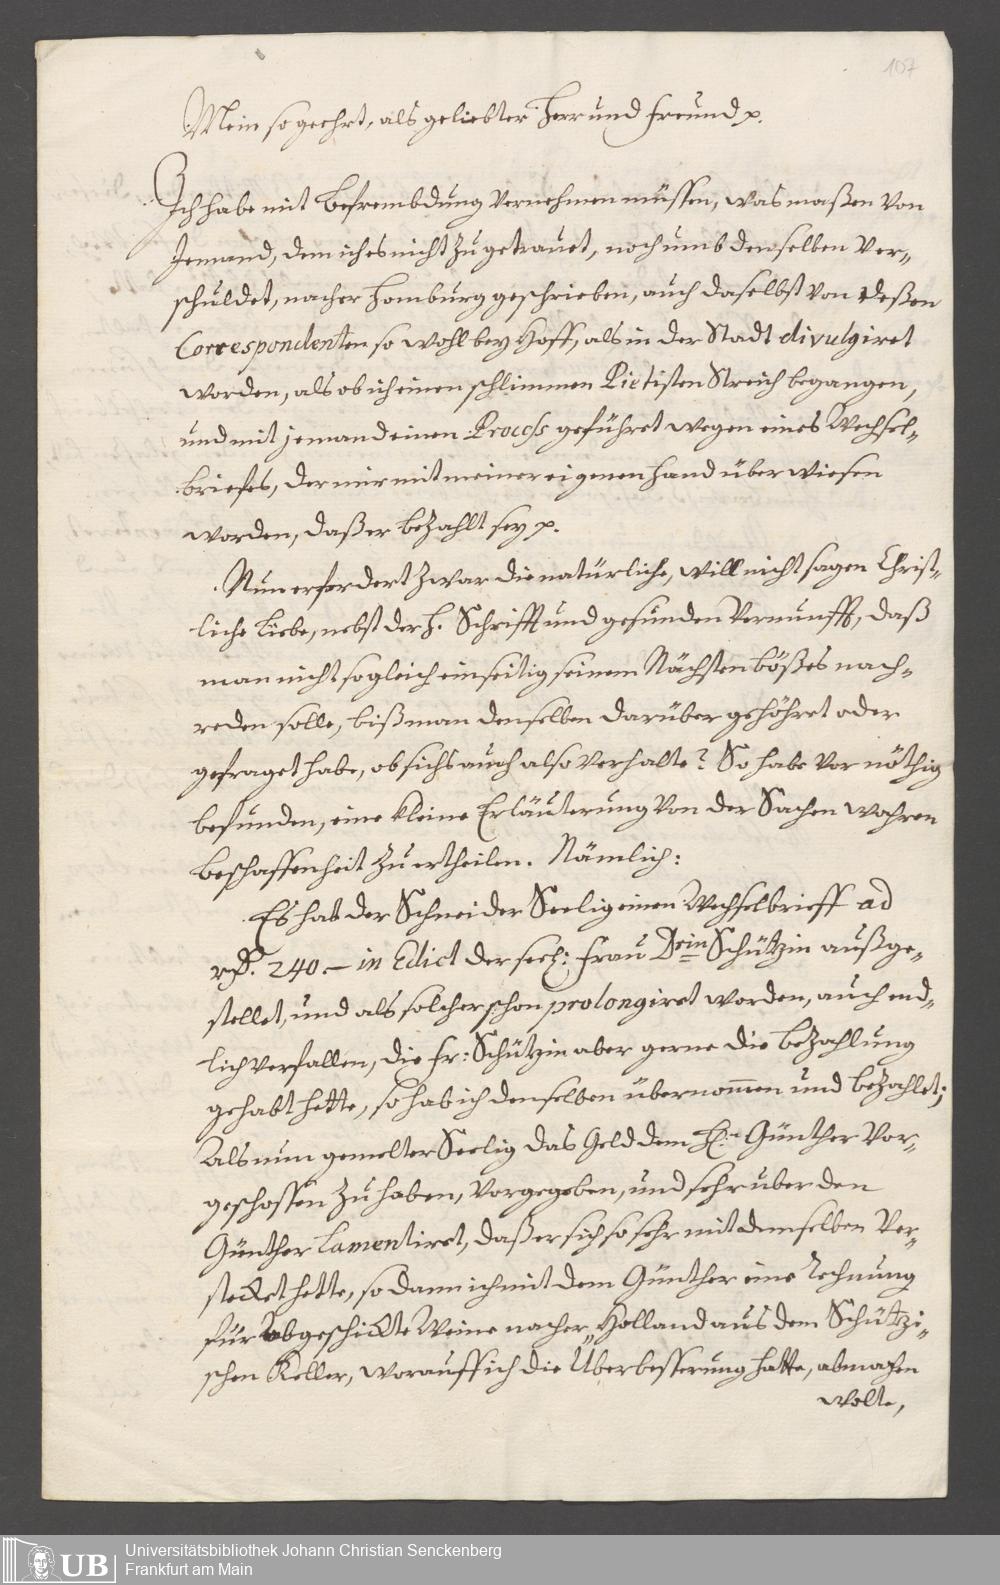 107
Mein so geehrt, als geliebter Herr und Freund p.
Ich habe mit Befrembdung vernehmen müssen, was maßen von
Jemand, dem ich es nicht zugetrauet, noch umb denselben ver-
schuldet, nacher Homburg geschrieben, auch daselbst von deßen
Correspondenten so wohl bey Hoff, als in der Stadt divulgiret
worden, als ob ich einen schlimmen Pietisten Streich begangen,
und mit jemand einen Process geführet wegen eines Wechsel-
briefes, der mir mit meiner eigenen Hand überwiesen
worden, daß er bezahlt sey p.
Nun erfordert zwar die natürliche, will nicht sagen Christ-
liche Liebe, nebst der H. Schrifft und gesunden Vernunfft, daß
man nicht sogleich einseitig seinem Nächsten bößes nach-
reden solle, biß man denselben darüber gehöhret oder
gefraget habe, ob sichs auch also verhalte? So habe vor nöthig
befunden, eine kleine Erläuterung von der Sachen wahren
Beschaffenheit zu ertheilen. Nämlich:
Es hat der Schneider Seelig einen Wechselbrieff ad
240.— in Edict der seel: Frau Schützin außge-
stellet, und als solcher schon prolongiret worden, auch end-
lich verfallen, die Fr: Schützin aber gerne die Bezahlung
gehabt hette, so hab ich denselben übernommen und bezahlet;
Als nun gemelter Seelig das Geld dem Hn. Günther vor-
geschossen zu haben, vorgegeben, und sehr uber den
Günther lamentiret, daß er sich so sehr mit demselben ver-
stecket hette, so dann ich mit dem Günther eine Rechnung
für abgeschickte Weine nacher Holland aus dem Schützi-
schen Keller, worauff ich die Uberbesserung hatte, abmachen
wolte,
UB
Universitätsbibliothek Johann Christian Senckenberg
Frankfurt am Main